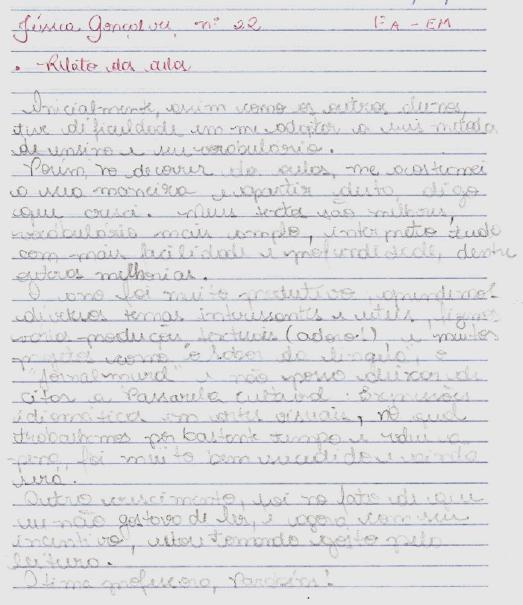 Jéssica Gonçalves, nº 22 EA - EM
• Relato da aula
Inicialmente, assim como os outros alunos,
tive dificuldade em me adaptar a seus métodos
de ensino e seu vocabulário.
Porém, no decorrer da aulas, me acostumei
a sua maneira e apartir disto, digo
que cresci. Meus textos são melhores,
vocabulário mais amplo, interpreto tudo
com mais facilidade e profundidade, dentre
outras melhorias.
O ano foi muito produtivo, aprendemos
diversos temas interessantes e uteis, fizemos
varias produções textuais (adoro!), e muitos
projetos como o sabor da língua, o
"jornal mural" e não posso deixar de
citar a Passarela cultural: Expressões
idiomáticas em artes visuais, no qual
trabalhamos por bastante tempo e valeu a
pena, foi muito bem sucedido e ainda
será.
Outro crescimento, foi no fato de que
eu não gostava de ler, e agora com seu
incentivo, estou tomando gosto pela
leitura.
Otima professora, Parabéns!